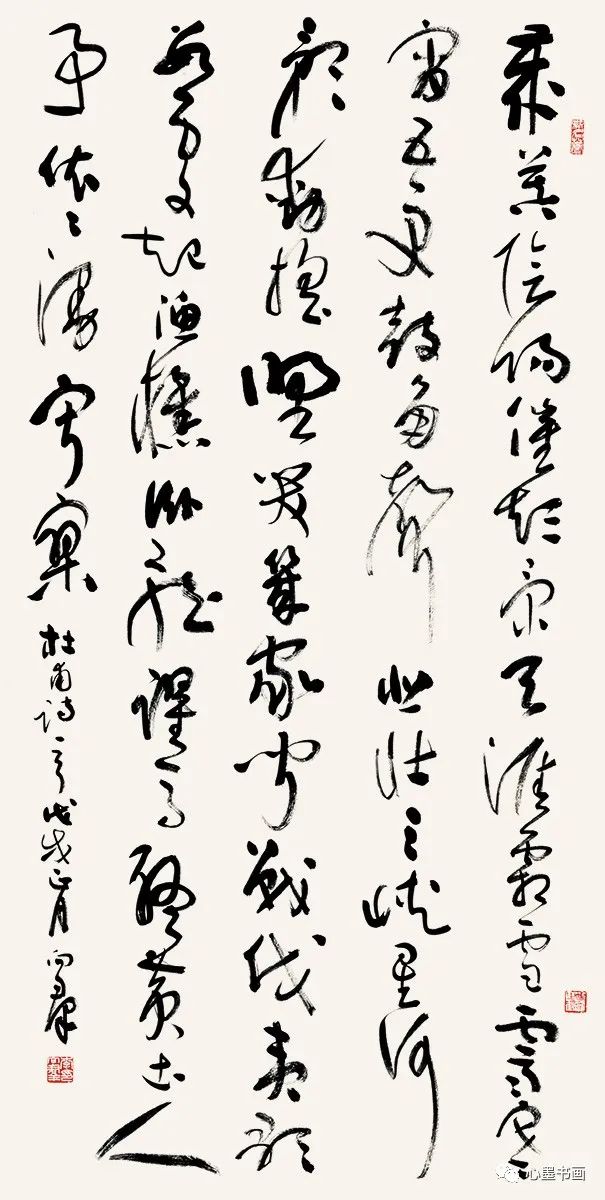 歲暮陰陽催短景天涯霜雪霽寒
宵五更鼓角聲悲壯三峽星河
影動搖野哭幾家聞戰伐夷歌
數處起漁樵臥龍躍馬終黃土人
事依依漫寂寥
杜甫詩一首戊戌正月
心墨书画